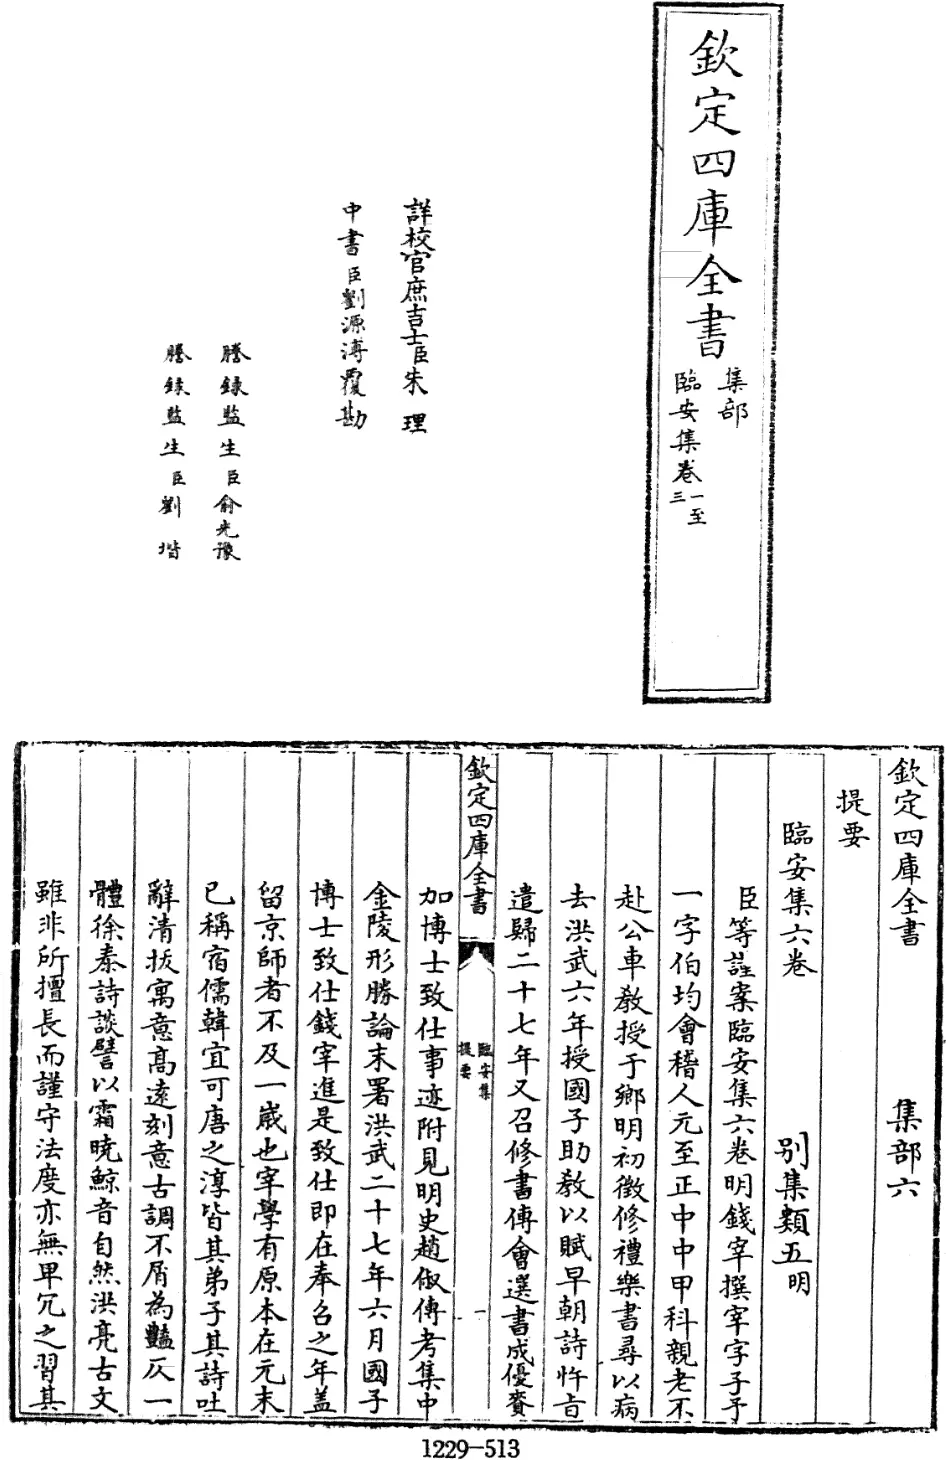 欽定四庫全書
集部
臨安集卷一至三
詳校官庶吉士臣朱理
中書臣劉源溥覆勘
謄錄監生臣俞光豫
謄錄監生臣劉堦
欽定四庫全書 集部六
提要
臨安集六卷 別集類五明
臣等謹案臨安集六卷明錢宰撰宰字子予
一字伯均會稽人元至正中中甲科親老不
赴公車教授于鄉明初徵修禮樂書尋以病
去洪武六年授國子助教以賦早朝詩忤旨
遣歸二十七年又召修書傳會選書成優賚
欽定四庫全書
臨安集
提要
一
加博士致仕事迹附見明史趙俶傳考集中
金陵形勝論末署洪武二十七年六月國子
博士致仕錢宰進是致仕即在奉召之年盖
留京師者不及一嵗也宰學有原本在元末
已稱宿儒韓宜可唐之淳皆其弟子其詩吐
辭清拔寓意高遠刻意古調不屑為豔仄一
體徐泰詩談譬以霜曉鯨音自然洪亮古文
雖非所擅長而謹守法度亦無卑冗之習其
1229—513